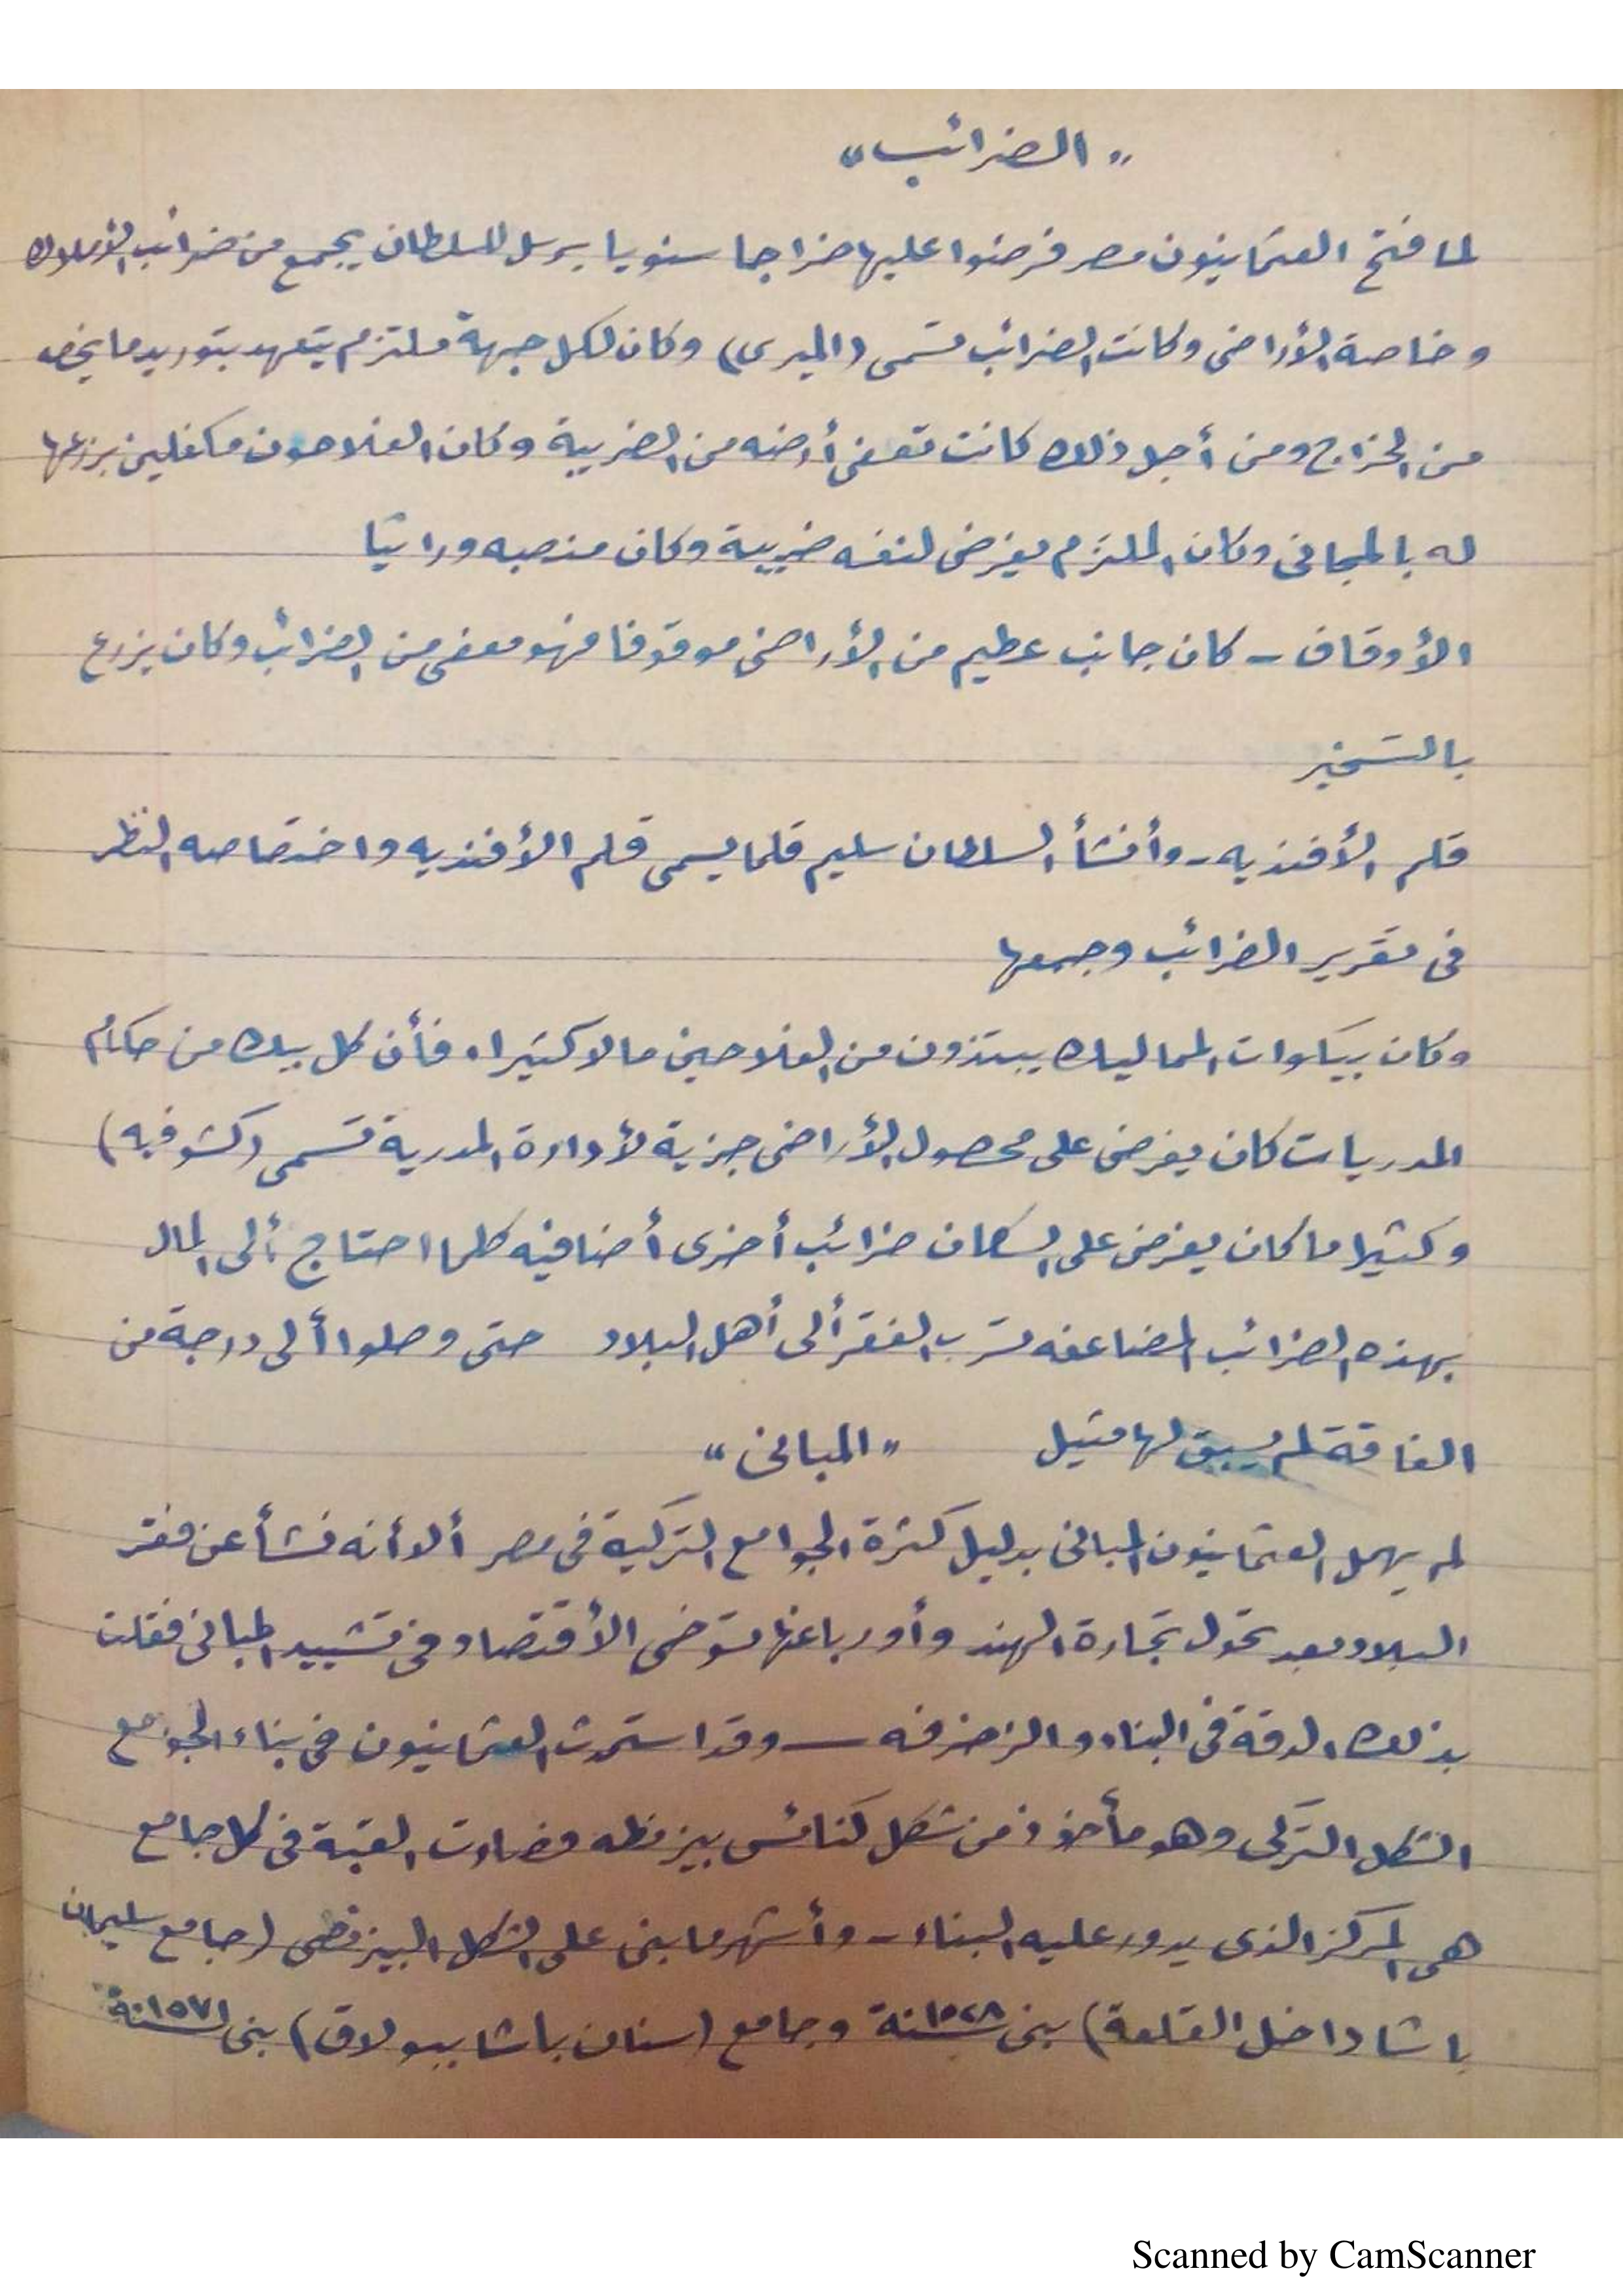 "الضرائب"
لما فتح العثمانيون مصر فرضوا عليها خراجا سنويا يرسل للسلطان يجمع من ضرائب الأملاك
وخاصة الأراضى وكانت الضرائب تسمى (الميرى) وكان لكل جهة ملتزم يتعهد بتوريد ما يخص
من الخراج ومن أجل ذلك كانت تعفى أرضه من الضريبة وكان الفلاحون مكفلين بزرعها
له بالمجانى وكان الملتزم يفرض لنفسه ضريبة وكان منصبه وراثيا
الأوقاف - كان جانب عظيم من الأراضى موقوفا فهو معفى من الضرائب وكان يزرع
بالتسخير
قلم الأفنديه - وأنشأ السلطان سليم قلما يسمى قلم الأفنديه واختصاصه النظر
فى تقرير الضرائب وجمعها
وكان بيكوات المماليك يبتزون من الفلاحين مالا كثيرا، فأن كل بيك من حكام
المدريات كان يفرض على محصول الأراضى جزية لأدارة المدرية تسمى (كشوفيه)
وكثيرا ما كان يفرض على السكان ضرائب أخرى أضافيه كلما احتاج ألى المال
بهذه الضرائب المضاعفه تسرب الفقر ألى أهل البلاد حتى وصلوا ألى درجة من
الفاقة لم يسبق لها مثيل "المبانى"
لم يهمل العثمانيون المبانى بدليل كثرة الجوامع التركية فى مصر ألا أنه نشأ عن فقر
البلاد بعد تحول تجارة الهند وأوربا عنها توخى الأقتصاد فى تشييد المبانى فقلت
بذلك الدقة فى البناء والزخرفه - وقد استحدث العثمانيون فى بناء الجوامع
الشكل التركى وهو مأخوذ من شكل كنائس بيزنطه فصارت القبة فى كل جامع
هى المركز الذى يدور عليه البناء - وأشهر ما بنى على الشكل البيزنطى (جامع سليمان
باشا داخل القلعة) بنى سنة ١٥٢٨ وجامع (سنان باشا ببولاق) بنى سنة ١٥٧١
Scanned by CamScanner